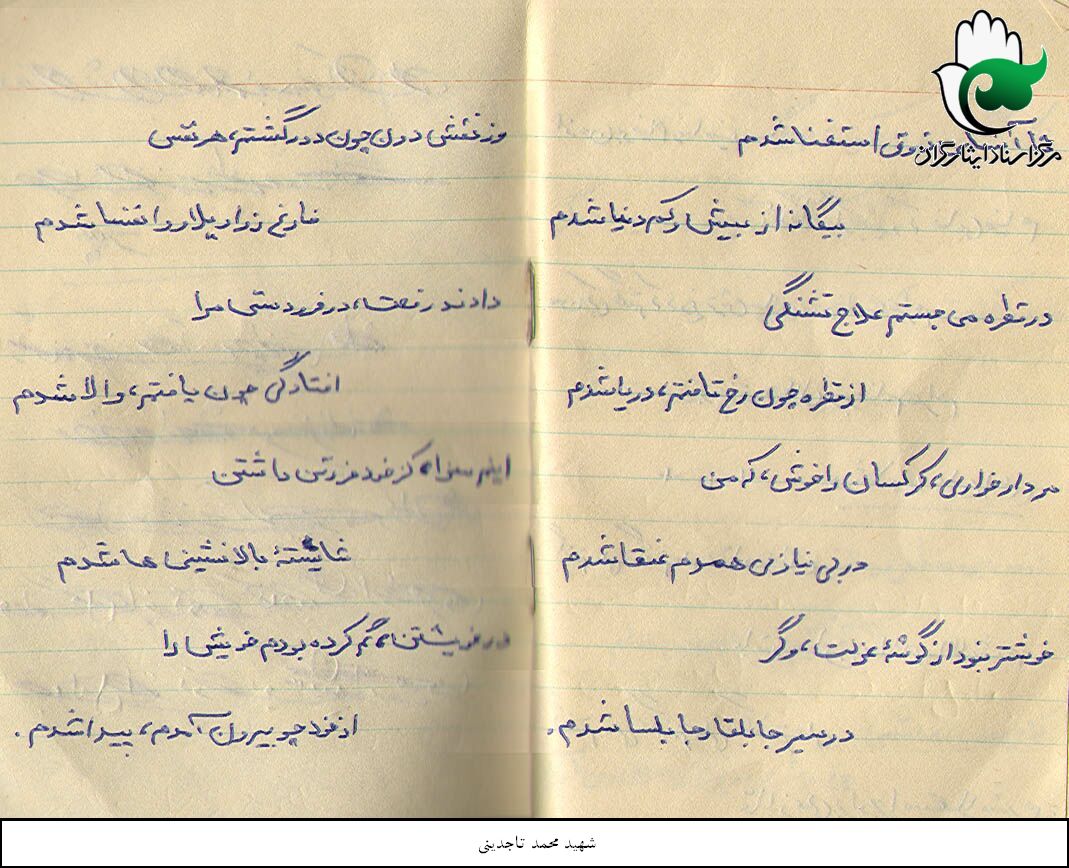 مرکز اسناد ایثارگران
ذوق استغنا شدم
بیگانه از بیش و کم دنیا شدم
در قطره می جستم علاج تشنگی
از قطره چون رخ تافتم، دریا شدم
مردار خواری، کرکسان را خوش، که من
در بی نیازی همدم عنقا شدم
خوشتر نبود از گوشهٔ عزلت، وگر
در سیر جابلقا و جابلسا شدم.
وز نفس دون چون دور گشتم، هر نفس
فارغ ز واویلا و وانفسا شدم
دادند رفعت، در فرودستی مرا
افتادگی چون یافتم، والا شدم
اینم سزا، کز خود فروتن داشتن
شایستهٔ بالانشینی ها شدم
در خویشتن، گم کرده بودم خویش را
از خود چو بیرون آمدم، پیدا شدم.
شهید محمد تاجدینی